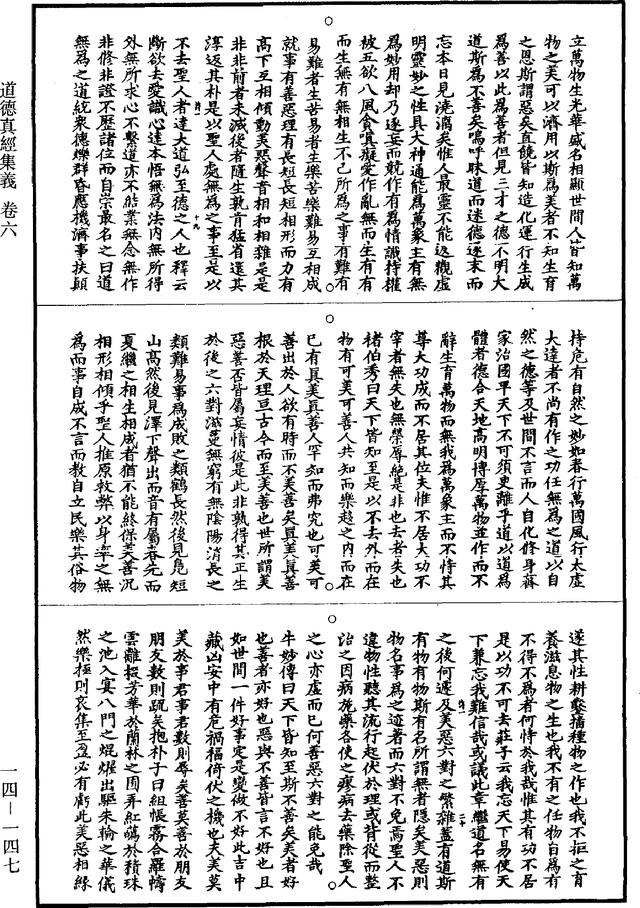 道德真經集義 卷六
一四—一四七
立萬物生光華咸名相顯世間人皆知萬
物之美可以濟用以斯為美者不知生育
之恩斯謂惡矣直饒皆知造化運行生成
為善以此為善者但見三才之德不明大
道斯為不善矣嗚呼昧道而迷德逐末而
忘本日見澆漓矣惟人最靈不能返觀虛
明靈妙之性具大神通能為萬象主有無
為妙用却乃逐妄而競作有為情識持權
被五欲八風貪嗔癡愛作亂無而生有有
而生無有無相生不已所為之事有難有
易難者生苦易者生樂苦樂難易互相成
就事有善惡理有長短長短相形而力有
高下互相傾動美惡聲音相和相雜是是
非非前者未滅後者隨生孰肯猛省還其
淳返其朴是以聖人處無為之事至是以
不去聖人者達大道弘至德之人也釋云
斷欲去愛識心達本悟無為法內無所得
外無所求心不繫道亦不結業無念無作
非修非證不歷諸位而自崇最名之曰道
無為之道統衆德爍群昏應機濟事扶顛
持危有自然之妙如春行萬國風行太虛
大達者不尚有作之功任無為之道以自
然之德等及世間不言而人自化修身齊
家治國平天下不可須臾離乎道以道為
體者德合天地高明博厚萬物並作而不
辭生育萬物而無我為萬象主而不恃其
尊大功成而不居其位夫惟不居大功不
宰者無失也無榮辱絶是非也去者失也
褚伯秀曰天下皆知至是以不去外而在
物有可美可善人共知而樂趨之内而在
已有真美真善人罕知而弗究也可美可
善出於人欲有時而不美善矣真美真善
根於天理亘古今而至美善也世所謂美
惡善否皆屬妄情彼是此非孰得其正生
於後之六對滋蔓無窮有無陰陽消長之
類難易事為成敗之類鶴長然後見凫短
山高然後見澤下聲出而音有屬春先而
夏繼之相生相成者猶不能終保美善況
相形相傾乎聖人推原救弊以身率之無
為而事自成不言而教自立民樂其俗物
遂其性耕鑿播種物之作也我不拒之育
養滋息物之生也我不有之任物自為有
不得不為者何恃於我哉惟其有功不居
是以功不可去莊子云我忘天下易使天
下兼忘我難信哉或議此章繼道名無有
之後何遽及美惡六對之繁雜蓋有道斯
有物有物斯有名所謂無者隱矣美惡則
物名事為之迹者而六對不免焉聖人不
違物性聽其流行起伏於理或背從而整
治之因病施藥各使之瘳病去藥除聖人
之心亦虛而已何善惡六對之能免哉
牛妙傳曰天下皆知至斯不善矣美者好
也善者亦好也惡與不善皆言不好也且
如世間一件好事定是變做不好此吉中
藏凶安中有危禍福倚伏之機也夫美莫
美於事君事君數則辱矣善莫善於朋友
朋友數則疏矣抱朴子曰組帳霧合羅幬
雲離掇芳華於蘭林之囿弄紅葩於積珠
之池入宴八門之焜燿出驅朱輪之華儀
然樂極則哀集至盈必有虧此美惡相緣